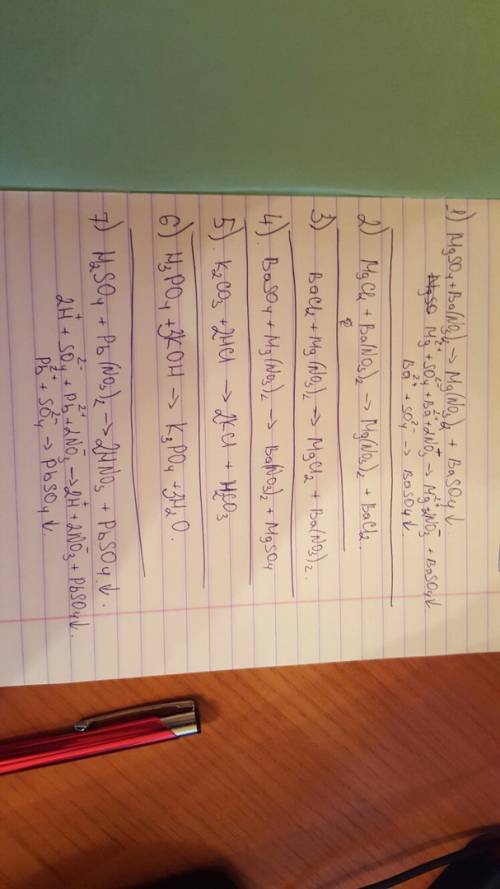 1) MgSO₄ + Ba(NO₃)₂ → Mg(NO₃)₂ + BaSO₄↓.
Mg²⁺ + SO₄²⁻ + Ba²⁺ + 2NO₃⁻ → Mg²⁺ + 2NO₃⁻ + BaSO₄↓
Ba²⁺ + SO₄²⁻ → BaSO₄↓
2) MgCl₂ + Ba(NO₃)₂ → Mg(NO₃)₂ + BaCl₂.
3) BaCl₂ + Mg(NO₃)₂ → MgCl₂ + Ba(NO₃)₂.
4). BaSO₄ + Mg(NO₃)₂ → Ba(NO₃)₂ + MgSO₄
5). K₂CO₃ + 2HCl → 2KCl + H₂CO₃
6) H₃PO₄ + 3KOH → K₃PO₄ + 3H₂O.
7) H₂SO₄ + Pb(NO₃)₂ → 2HNO₃ + PbSO₄↓.
2H⁺ + SO₄²⁻ + Pb²⁺ + 2NO₃⁻ → 2H⁺ + 2NO₃⁻ + PbSO₄↓.
Pb²⁺ + SO₄²⁻ → PbSO₄↓